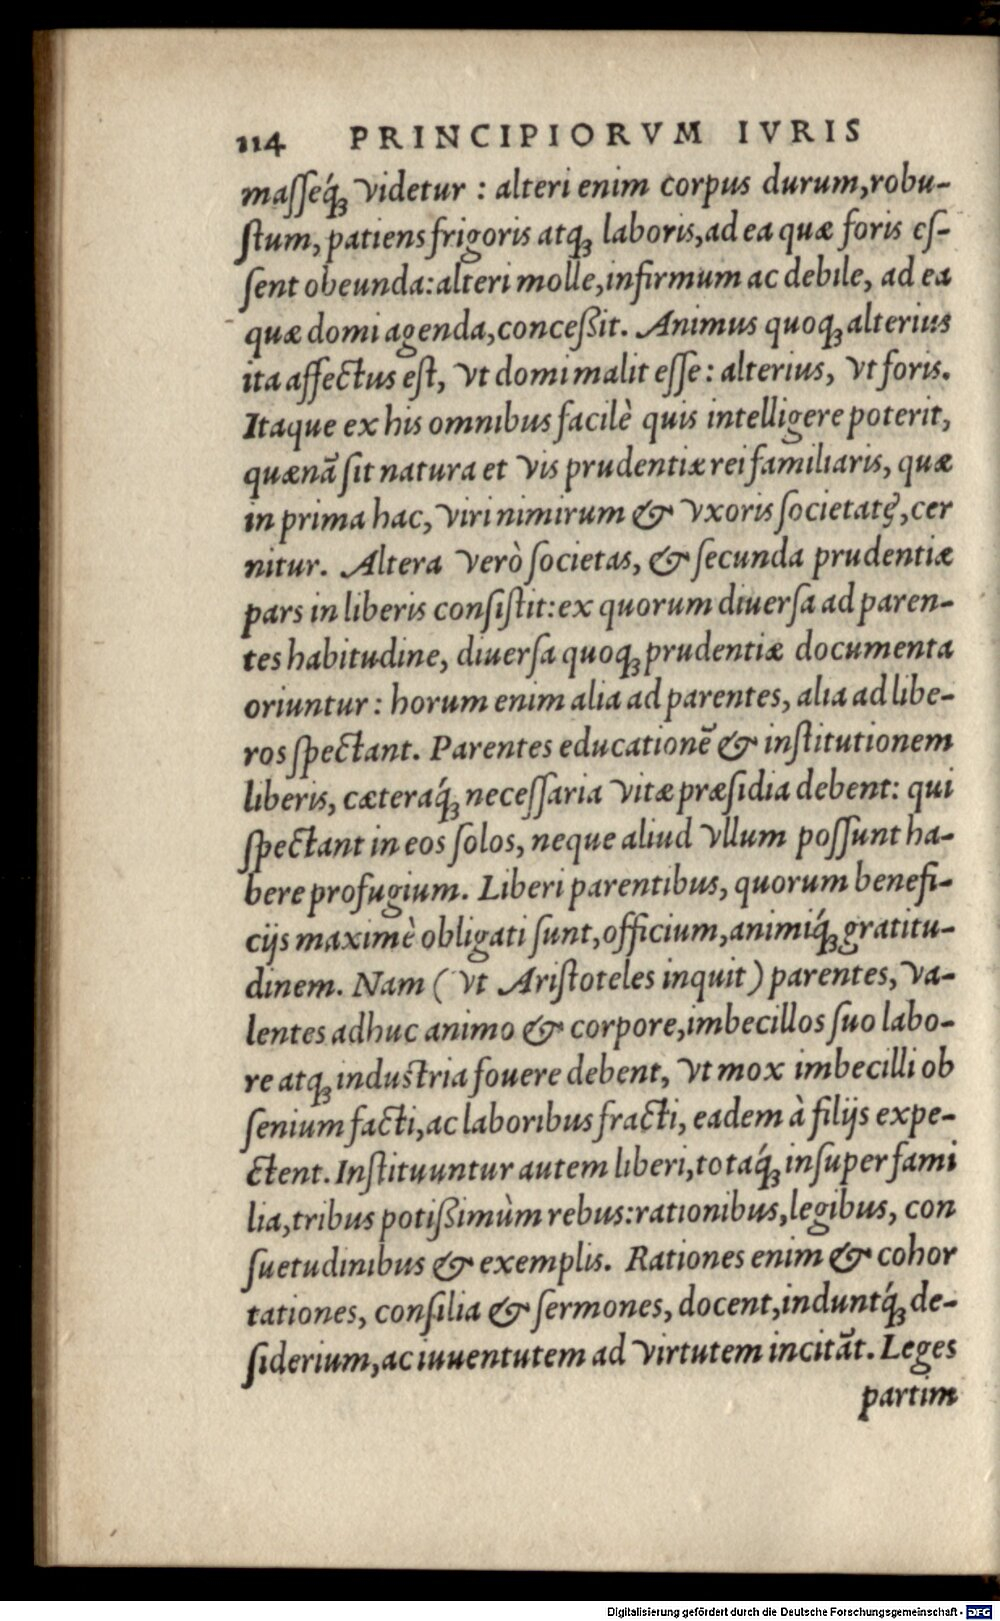 114 PRINCIPIORVM IVRIS
masseq́ꝫ videtur : alteri enim corpus durum, robu-
stum, patiens frigoris atqꝫ laboris, ad ea quæ foris es-
sent obeunda: alteri molle, infirmum ac debile, ad ea
quæ domi agenda, conceßit. Animus quoqꝫ alterius
ita affectus est, vt domi malit esse: alterius, vt foris.
Itaque ex his omnibus facilè quis intelligere poterit,
quænã sit natura et vis prudentiæ rei familiaris, quæ
in prima hac, viri nimirum & vxoris societatę, cer
nitur. Altera verò societas, & secunda prudentiæ
pars in liberis consistit: ex quorum diuersa ad paren-
tes habitudine, diuersa quoqꝫ prudentiæ documenta
oriuntur : horum enim alia ad parentes, alia ad libe-
ros spectant. Parentes educationẽ & institutionem
liberis, cæteraq́ꝫ necessaria vitæ præsidia debent: qui
spectant in eos solos, neque aliud vllum possunt ha-
bere profugium. Liberi parentibus, quorum benefi-
cijs maximè obligati sunt, officium, animiq́ꝫ gratitu-
dinem. Nam ( vt Aristoteles inquit ) parentes, va-
lentes adhuc animo & corpore, imbecillos suo labo-
re atqꝫ industria fouere debent, vt mox imbecilli ob
senium facti, ac laboribus fracti, eadem à filijs expe-
ctent. Instituuntur autem liberi, totaq́ꝫ insuper fami
lia, tribus potißimùm rebus: rationibus, legibus, con
suetudinibus & exemplis. Rationes enim & cohor
tationes, consilia & sermones, docent, induntq́ꝫ de-
siderium, ac iuuentutem ad virtutem incitãt. Leges
partim
Digitalisierung gefördert durch die Deutsche Forschungsgemeinschaft - DFG